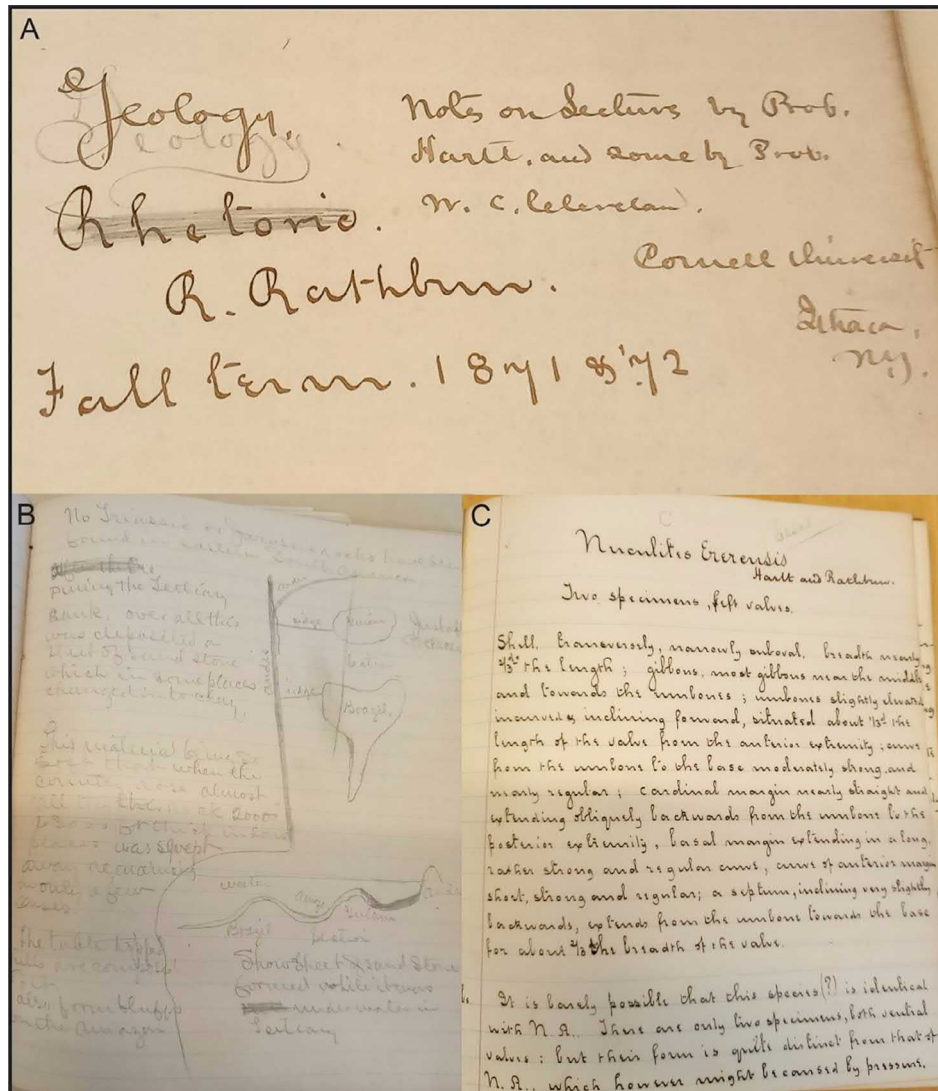 A
Geology.
Geology
Rhetoric.
R. Rathbun.
Fall term. 1871 & '72
Notes on Lecture by Prob.
Hartt, and some by Prob.
W. C. Cleveland.
Cornell Universit
Ithaca,
NY.
B
No Triassic or Jurassic rocks have been
found in eastern South America
during the Tertiary
Bank, over all this
was deposited a
sheet of sand stone
which in some places
changed into clay.
This material
when the
almost
2000
was swept
away remaining
only a few
The table topped
hills are
also form bluffs
on the Amazon
Andes
ridge
Guiana
ridge
Brazil
water
Brazil
Guiana
section
Show Sheet of sand stone
formed while it was
under water in
Tertiary
C
Nuculites Ererensis
Hartt and Rathbun.
Two specimens, left valves.
Shell, transversely, narrowly suboval, breadth nearly
2/3ds the length; gibbous, most gibbous near the middle
and towards the umbones; umbones slightly elevated
incurved & inclining forward, situated about 1/3d the
length of the valve from the anterior extremity; curve
from the umbone to the base moderately strong, and
nearly regular; cardinal margin nearly straight and
extending obliquely backwards from the umbone to the
posterior extremity, basal margin extending in a long,
rather strong and regular curve, curve of anterior margin
short, strong and regular; a septum, inclining very slightly
backwards, extends from the umbone towards the base
for about 2/3 the breadth of the valve.
It is barely possible that this species(?) is identical
with N. A.. There are only two specimens, both ventral
valves; but their form is quite distinct from that of
N. A., which however might be caused by pressure.